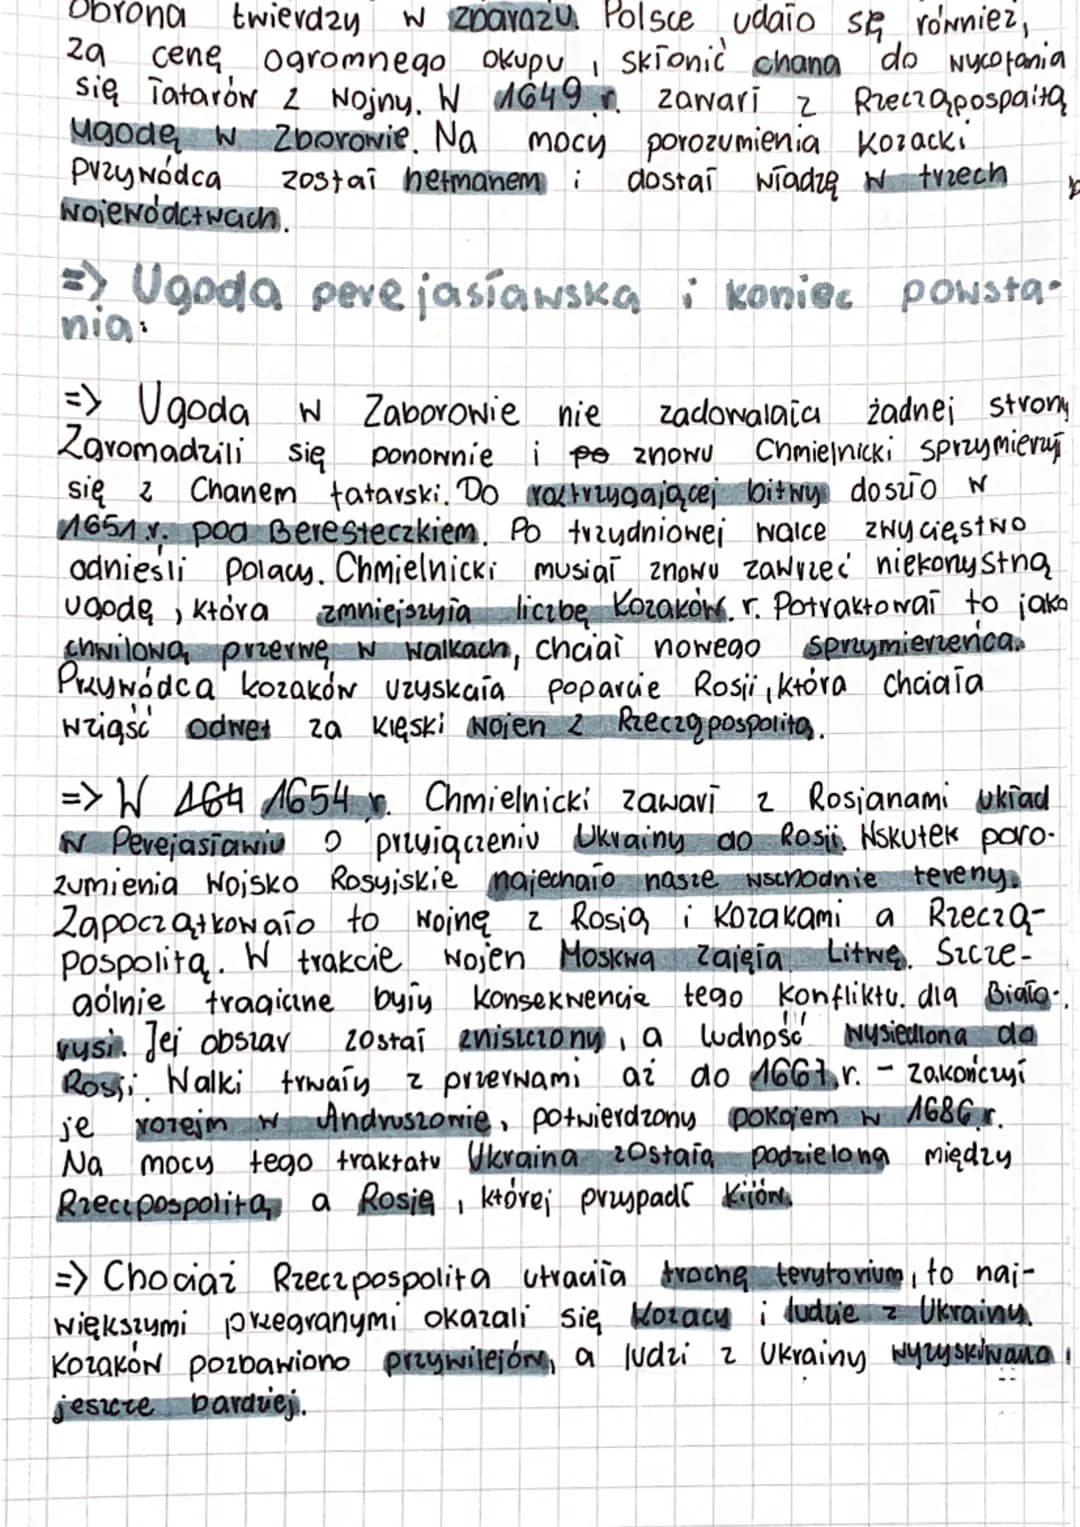 Obrona twierdzy w Zbarażu. Polsce udało się również,
za cenę ogromnego okupu, skłonić chana do wycofania
się Tatarów z wojny. W 1649 r. zawarł z Rzecząpospolitą
ugodę w Zborowie. Na mocy porozumienia kozacki
przywódca został hetmanem i dostał władzę w trzech
województwach.
=> Ugoda perejasławska i koniec powsta-
nia:
=> Ugoda w Zaborowie nie zadowalała żadnej strony
Zgromadzili się ponownie i po znowu Chmielnicki sprzymierzył
się z Chanem tatarski. Do roztrzygającej bitwy doszło w
1651 r. pod Beresteczkiem. Po trzydniowej walce zwycięstwo
odnieśli Polacy. Chmielnicki musiał znowu zawrzeć niekonystną
ugodę, która zmniejszyła liczbę Kozaków. r. Potraktował to jako
chwilową przerwę w walkach, chciał nowego sprzymierzeńca.
Przywódca kozaków uzyskała poparcie Rosji, która chciała
wziąść odwet za klęski wojen z Rzecząpospolitą.
=> W 164 1654 r. Chmielnicki zawarł z Rosjanami układ
w Perejasławiu o przyłączeniu Ukrainy do Rosji. Wskutek poro-
zumienia wojsko Rosyjskie najechało nasze wschodnie tereny.
Zapoczątkowało to wojnę z Rosją i Kozakami a Rzeczą-
pospolitą. W trakcie wojen Moskwa zajęła Litwę. Szcze-
gólnie tragiczne były konsekwencje tego konfliktu. dla Biało-
rusi. Jej obszar został zniszczony, a ludność wysiedlona do
Rosji. Walki trwały z przerwami aż do 1667 r. - zakończył
je rozejm w Andruszowie, potwierdzony pokojem w 1686 r.
Na mocy tego traktatu Ukraina została podzielona między
Rzeczpospolitą a Rosję, której przypadł Kijów.
=> Chociaż Rzeczpospolita utraciła trochę terytorium, to naj-
większymi przegranymi okazali się kozacy i ludzie z Ukrainy.
Kozaków pozbawiono przywilejów, a ludzi z Ukrainy wyzyskiwano
jeszcze bardziej.